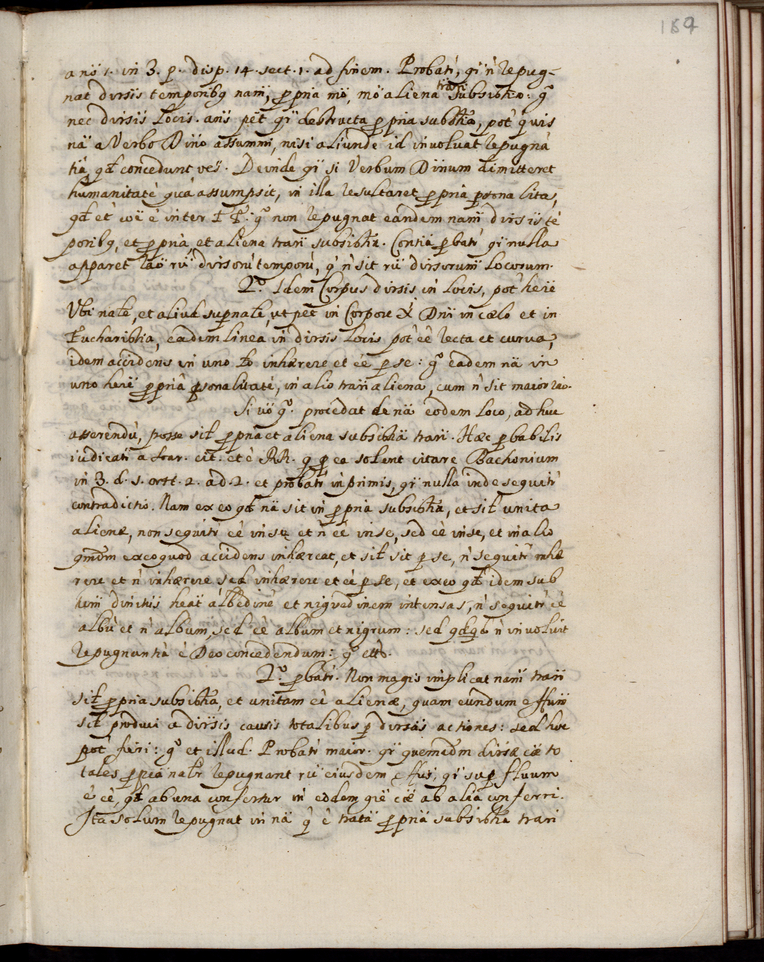 189
anō 1. in 3. p. disp. 14. sect. 1. ad finem. Probatr̄, qī n̄ repug-
nat diversis temporibq nam̄, ꝓpria mō, mō aliena trari subsistā. gº
nec diversis locis. ans pēt qī destructa ꝓpria substā, pot' q̄uis
nā a Verbo Divino assummi, nisi aliunde id involuat repugnā
tiā, qđ concedunt oes. Deinde qī si Verbum Divinum dimitteret
humanitatē quā assumpsit, in illa resultaret ꝓpria ꝑsonalitas,
qđ et coē ē inter gº non repugnat eandem nam̄ diversis tē
poribq, et ꝓpria, et aliena trari subsistā. Contia ꝓbatr̄ qī nulla
apparet rāo rū diversorū temporū, q̄ n̄ sit rū diversorum locorum.
2º. Idem Corpus diversis in locis, pot' hēre
Ubi nale, et aliud supnale, ut pēt in Corpore X Dni in cælo et in
Eucharistia, eadem linea in diversis locis pot' ēē recta et curva,
idem accidens in uno inhærere et ēē per se: gº eadem nā in
uno hēre ꝓpriā ꝑsonalitatē, in alio trari aliena, cum n̄ sit maior rāo.
Si vō gº. procedat de nā eodem loco, ad huc
asserendū, posse sil ꝓpria et aliena subsistā trari. Hæc ꝓbabilis
iudicatr̄ a cit. et ē RR. q̄ ꝓ ea solent citare Bachonium
in 3. d. 1. art. 2. ad 2. et probatr̄ inprimis, qī nulla inde sequitr̄
contradictio. Nam ex eo qđ nā sit in ꝓpria subsistā, et sil unita
alienæ, non sequitr̄ ēē in se et n̄ ēē in se, sed ēē in se, et in alio
quēdm ex eo quod accidens inhæreat, et sil sit per se, n̄ sequitr̄ inhæ
rere et n̄ inhærere sed inhærere et ēē per se, et ex eo qđ idem sub
divinitus heat albedinē et nigredinem intensas, n̄ sequitr̄ ēē
albū et n̄ album, sed ēē album et nigrum: sed qđqđ n̄ involvit
repugnantiā ē Deo concedendum: gº etc.
2º. ꝓbatr̄. Non magis implicat nam̄ trari
sil ꝓpria subsistā, et unitam ēē alienæ, quam eundum effum
sil produci a diversis causis totalibus per diversas actiones: sed hoc
pot' fieri: gº et illud. Probatr̄ maior. qī quemadm diversæ cāæ to
tales ꝓpriā natr̄ repugnant rū eiusdem effus, qī superfluum
ē ēē, qđ ab una confertur in eodem gre cāæ ab alia conferri.
Ita solum repugnat in nā q̄ ē trata ꝓpriā subsistā trari